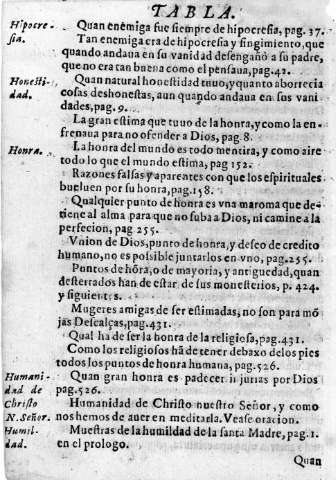 TABLA.
Hipocre-
sia.
Quan enemiga fue siempre de hipocresia, pag. 37.
Tan enemiga era de hipocresia y fingimiento, que
quando andaua en su vanidad desengañò a su padre,
que no era tan buena como el pensaua, pag. 42.
Honesti-
dad.
Quan natural honestidad tuuo, y quanto aborrecia
cosas deshonestas, aun quando andaua en sus vani
dades, pag. 9.
La gran estima que tuuo de la honra, y como la en-
frenaua para no ofender a Dios, pag 8.
Honra.
La honra del mundo es todo mentira, y como aire
todo lo que el mundo estima, pag 152.
Razones falsas y aparentes con que los espirituales
bueluen por su honra, pag. 158.
Qualquier punto de honra es vna maroma que de-
tiene al alma para que no suba a Dios, ni camine a la
perfecion, pag 255.
Vnion de Dios, punto de honra, y deseo de credito
humano, no es possible juntarlos en vno, pag. 255.
Puntos de hõra, o de mayoria, y antiguedad, quan
desterrados han de estar de sus monesterios, p. 424.
y siguientes.
Mugeres amigas de ser estimadas, no son para mõ
jas Descalças, pag. 431.
Qual ha de ser la honra de la religiosa, pag. 431.
Como los religiosos hã de tener debaxo de los pies
todos los puntos de honra humana, pag. 526.
Quan gran honra es padecer injurias por Dios
pag. 526.
Humani-
dad de
Christo
N. Señor.
Humanidad de Christo nuestro Señor, y como
nos hemos de auer en meditarla. Vease oracion.
Humil-
dad.
Muestras de la humildad de la santa Madre, pag. 1.
en el prologo.
Quan